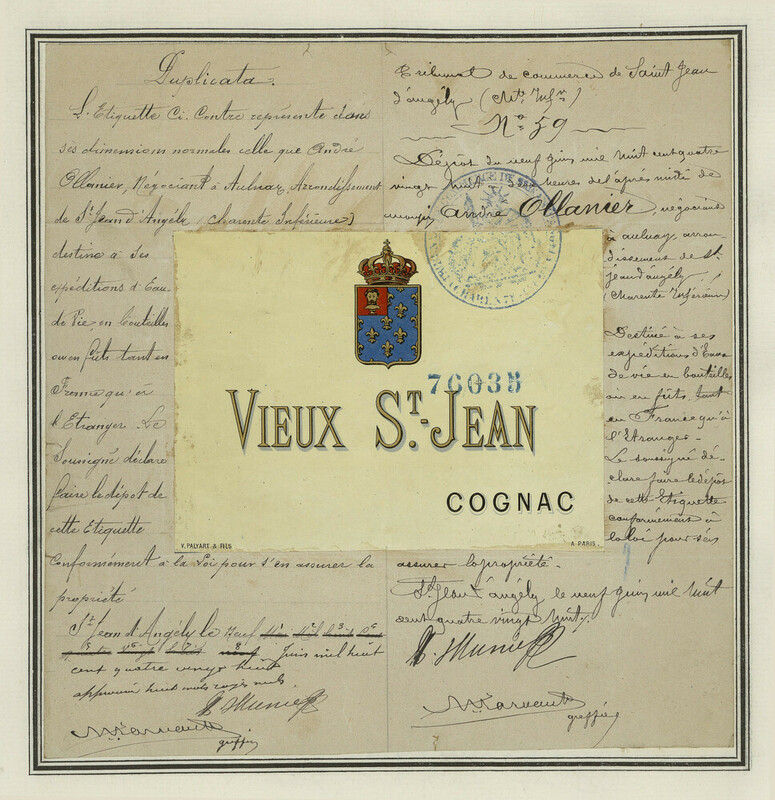 Duplicata.
L'Etiquette Ci. Contre représente dans
ses dimensions normales celle que André
Ollanier, Négociant à Aulnay, Arrondissement
de St Jean d'Angély (Charente Inférieure)
destine à ses
expéditions d'Eau
de Vie, en bouteilles
ou en fûts tant en
France qu'à
l'Etranger. Le
Soussigné déclare
faire le dépot de
cette Etiquette
Conformément à la Loi pour s'en assurer la
propriété
St Jean d'Angély le Neuf
Juin mil huit
cent quatre vingt huit
huit mots rayés nuls.
greffier
Tribunal de commerce de Saint Jean
d'angély
No 59
Dépôt du neuf juin mil huit cent quatre
vingt huit heures de l'après midi de
André Ollanier, négociant
à aulnay, arron
dissement de St
Jean d'angély
(Charente Inférieure)
Destiné à ses
expéditions d'Eaux
de vie en bouteilles
ou en fûts, tant
en France qu'à
l'Etranger.
Le soussigné dé-
clare faire le dépôt
de cette Etiquette
conformément à
la loi pour s'en
assurer la propriété.
St Jean d'angély le neuf juin mil huit
cent quatre vingt huit.
greffier
76035
VIEUX ST.-JEAN
COGNAC
V. PALYART & FILS
A PARIS.